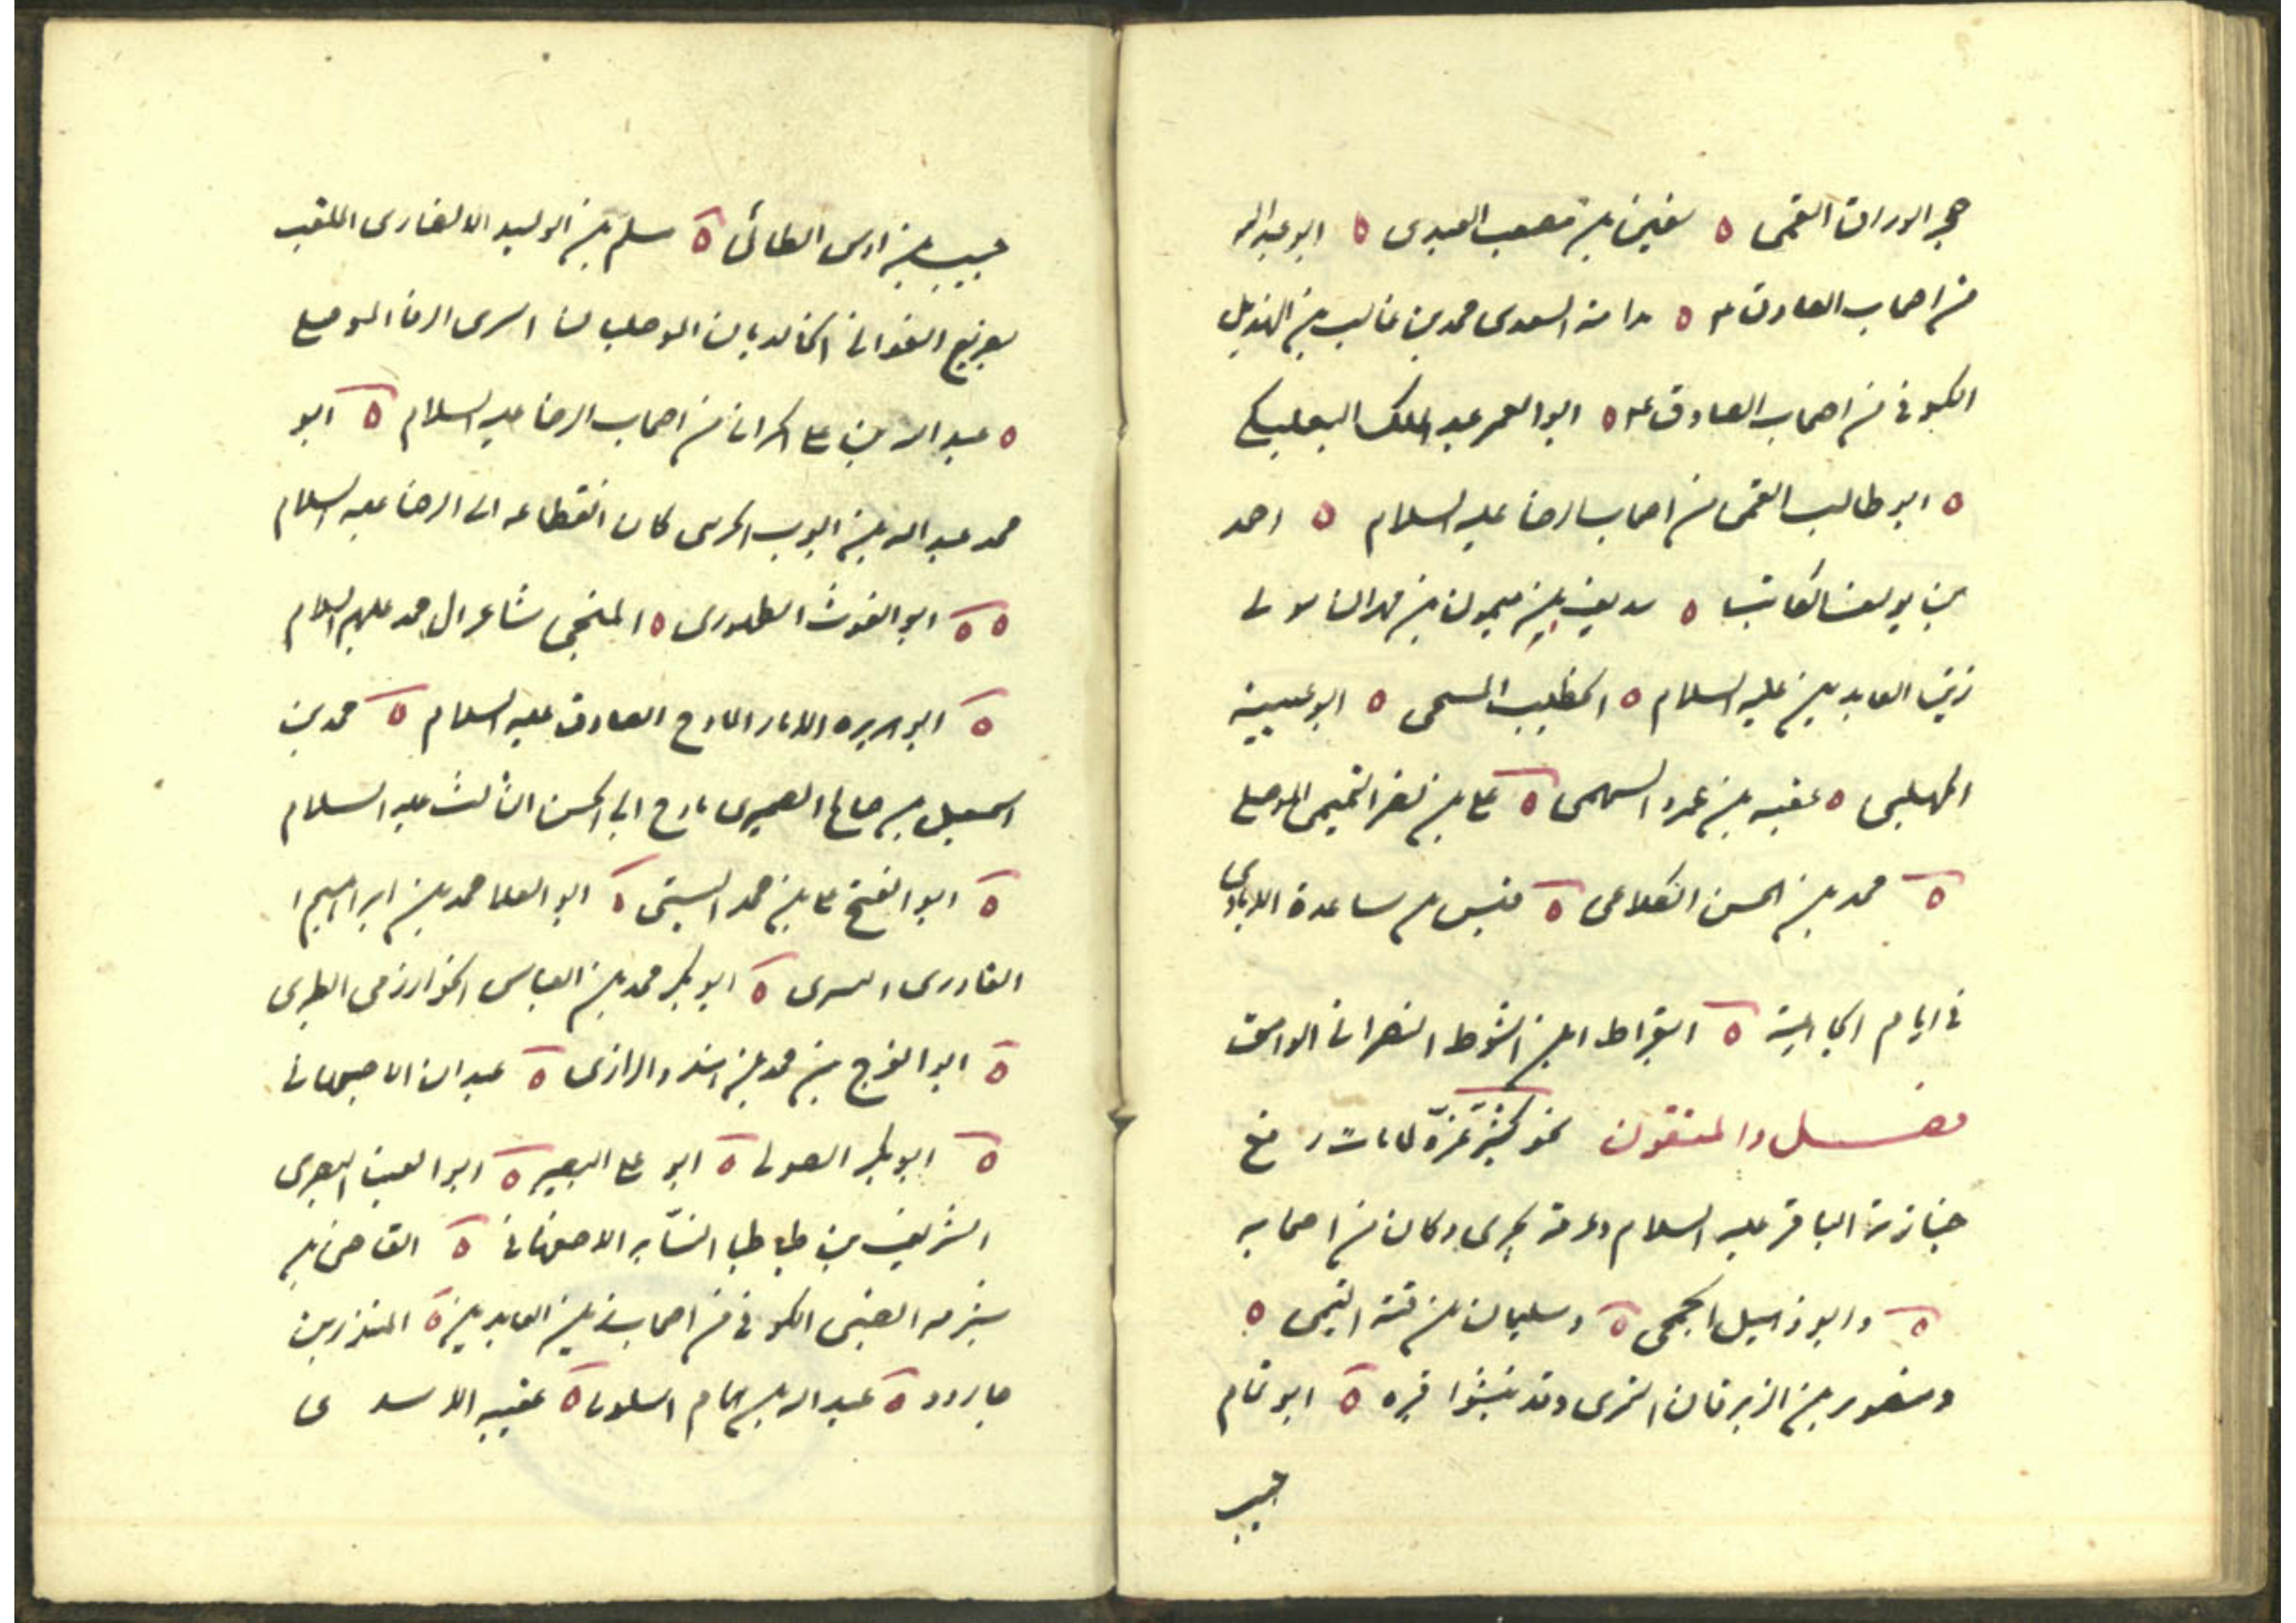 هجر الوراق القمى ٥ سفين بن مصعب العبدى ٥ ابو عبد الله
من اصحاب الصادق ع ٥ السعدى محمد بن غالب بن الهذيل
الكوفى من اصحاب الصادق ع ٥ ابو الغمر عبد الملك البعلبكى
٥ ابو طالب القمى من اصحاب الرضا عليه السلام ٥ احمد
بن يوسف الكاتب ٥ سديف بن ميمون بن مهران مولى
زين العابدين عليه السلام ٥ الخطيب ٥ ابو عيينة
المهلبى ٥ عقبه بن عمرو السهمى ٥ على بن نصر التميمى الموصلى
٥ محمد بن الحسن الكلاعى ٥ قيس بن ساعدة الايادى
فى ايام الجاهلية ٥ ابقراط ابن الشوط النصرانى الوامق
فصل والمتقون نحو كثير عزة لما مات رفع
جنازته الباقر عليه السلام وعرقه يجرى وكان من اصحابه
٥ وابو دهبل الجمحى ٥ وسليمان بن قتة التيمى ٥
ومنصور بن الزبرقان النمرى وقد نبشوا قبره ٥ ابو تمام
حبيب
حبيب بن اوس الطائى ٥ مسلم بن الوليد الانصارى الملقب
بصريع الغوانى الخالديان الموصليان السرى الرفا الموصلى
٥ عبد الله بن على من اصحاب الرضا عليه السلام ٥ ابو
محمد عبد الله بن ايوب كان انقطاعه الى الرضا عليه السلام
٥ ٥ ابو الغوث الطهورى ٥ المنبجى شاعر ال محمد عليهم السلام
٥ ابو هريره الابار المادح الصادق عليه السلام ٥ محمد بن
اسمعيل بن صالح الصميرى مادح ابى الحسن الثالث عليه السلام
٥ ابو الفتح على بن محمد البستى ٥ ابو العلا محمد بن ابراهيم ا
٥ ابو بكر محمد بن العباس الخوارزمى الطبرى
٥ ابو الفرج بن محمد بن هندو الرازى ٥ عبدان الاصبهانى
٥ ابو بكر الصولى ٥ ابو على البصير ٥ ابو العينا البصرى
الشريف بن طباطبا النسابه الاصفهانى ٥ القاضى بن
شبرمه الضبى الكوفى من اصحاب زين العابدين ٥ المنذر بن
جارود ٥ عبد الله بن همام السلولى ٥ عقيبه الاسدى